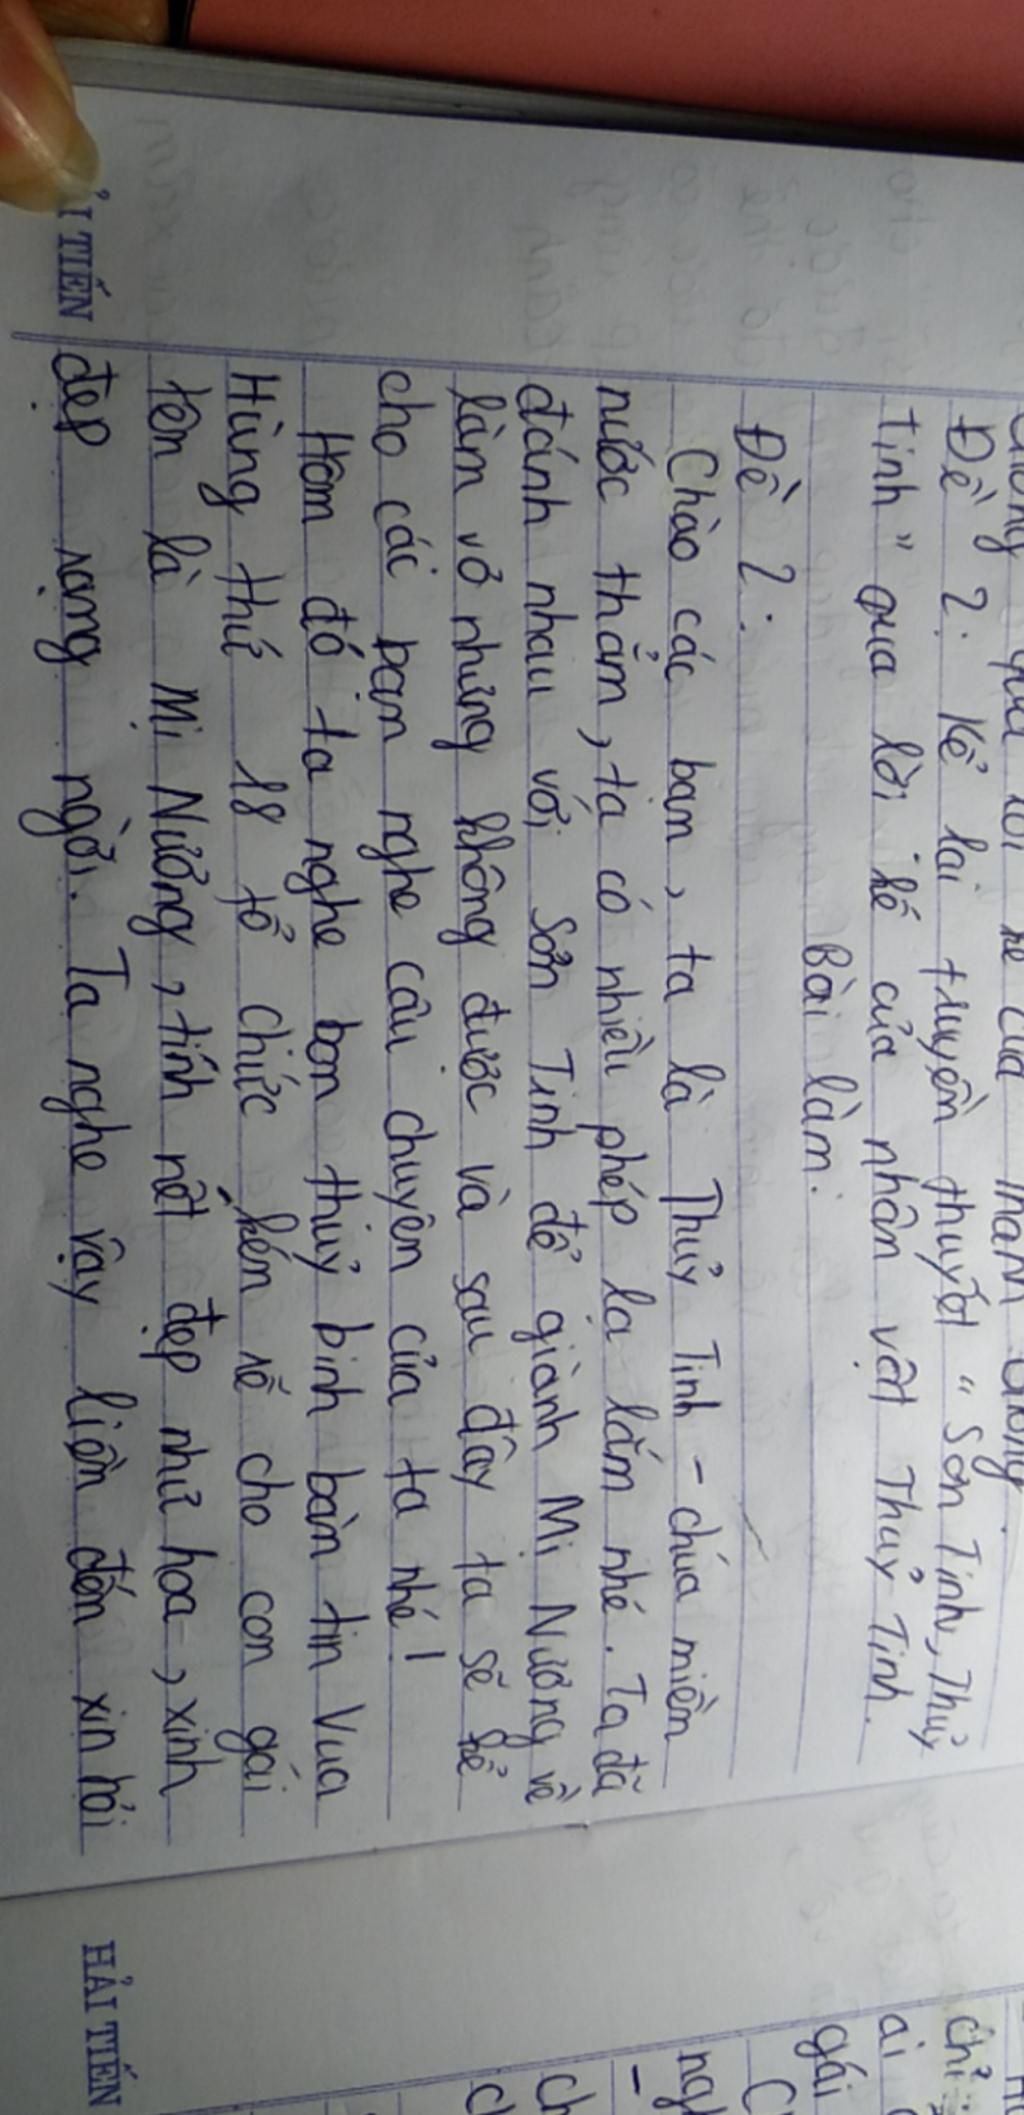 Đề 2: Kể lại truyền thuyết " Sơn Tinh, Thủy
Tinh " qua lời kể của nhân vật Thủy Tinh.
Bài làm.
Đề 2:
Chào các bạn, ta là Thủy Tinh - chúa miền
nước thẳm, ta có nhiều phép lạ lắm nhé. Ta đã
đánh nhau với Sơn Tinh để giành Mị Nương về
làm vợ nhưng không được và sau đây ta sẽ kể
cho các bạn nghe câu chuyện của ta nhé!
Hôm đó ta nghe bọn thủy binh bàn tin Vua
Hùng thứ 18 tổ chức kén rể cho con gái
tên là Mị Nương, tính nết đẹp như hoa, xinh
đẹp rạng ngời. Ta nghe vậy liền đến xin hỏi
HẢI TIẾN
chỉ
ai
gái